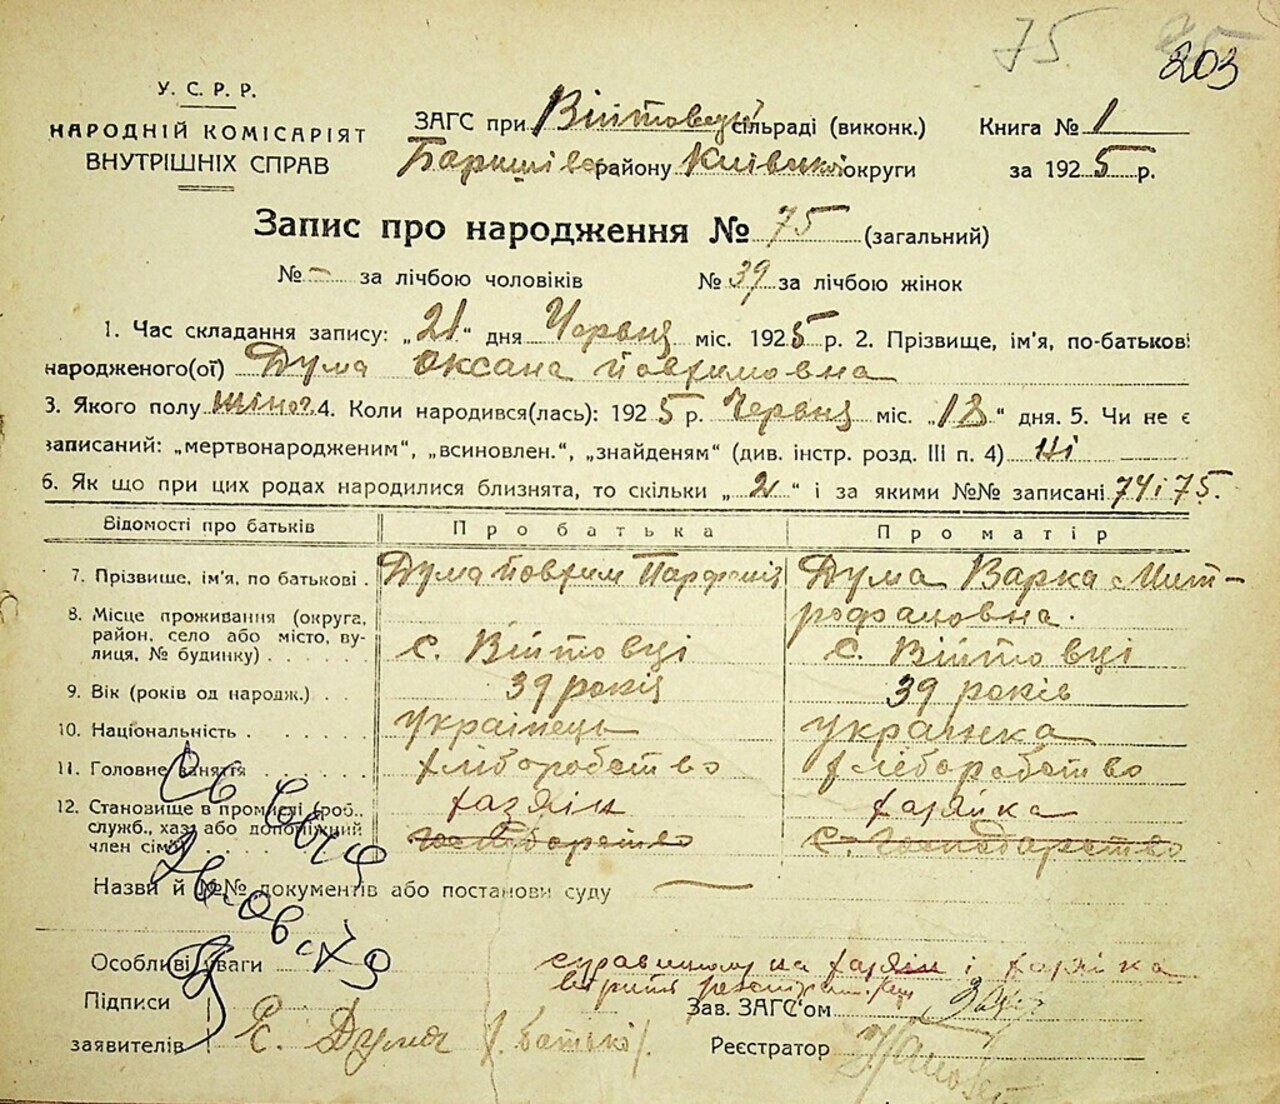 75 203
У. С. Р. Р.
НАРОДНІЙ КОМІСАРІЯТ
ВНУТРІШНІХ СПРАВ
ЗАГС при Війтовецькій сільраді (виконк.) Книга № 1
Баришівс району Київської округи за 1925 р.
Запис про народження № 75 (загальний)
№ – за лічбою чоловіків № 39 за лічбою жінок
1. Час складання запису: „21“ дня Червня міс. 1925 р. 2. Прізвище, ім'я, по-батькові
народженого(ої) Дума Оксана Йовхимовна
3. Якого полу жіноч. 4. Коли народився(лась): 1925 р. Червня міс. „18“ дня. 5. Чи не є
записаний: „мертвонародженим“, „всиновлен.“, „знайденям“ (див. інстр. розд. III п. 4) Ні
6. Як що при цих родах народилися близнята, то скільки „2“ і за якими №№ записані 74 і 75.
Відомості про батьків Про батька Про матір
7. Прізвище, ім'я, по батькові . Дума Йовхим Парфенів Дума Варка Мит-
рофановна.
8. Місце проживання (округа,
район, село або місто, ву-
лиця, № будинку) . . . . . с. Війтовці с. Війтовці
9. Вік (років од народж.) . . 39 років 39 років
10. Національність . . . . . . Українець Українка
11. Головне заняття . . . . . хліборобство хліборобство
12. Становище в промислі (роб.,
служб., хаз. або допоміжний
член сім'ї) . . . . . хазяін хазяйка
Господарство с. Господарство
Назви й №№ документів або постанови суду —
Особливі уваги справленому на хазяін і хазяіка
вірити
Підписи
заявителів Є. Дума (батько).
Зав. ЗАГС'ом
Реєстратор